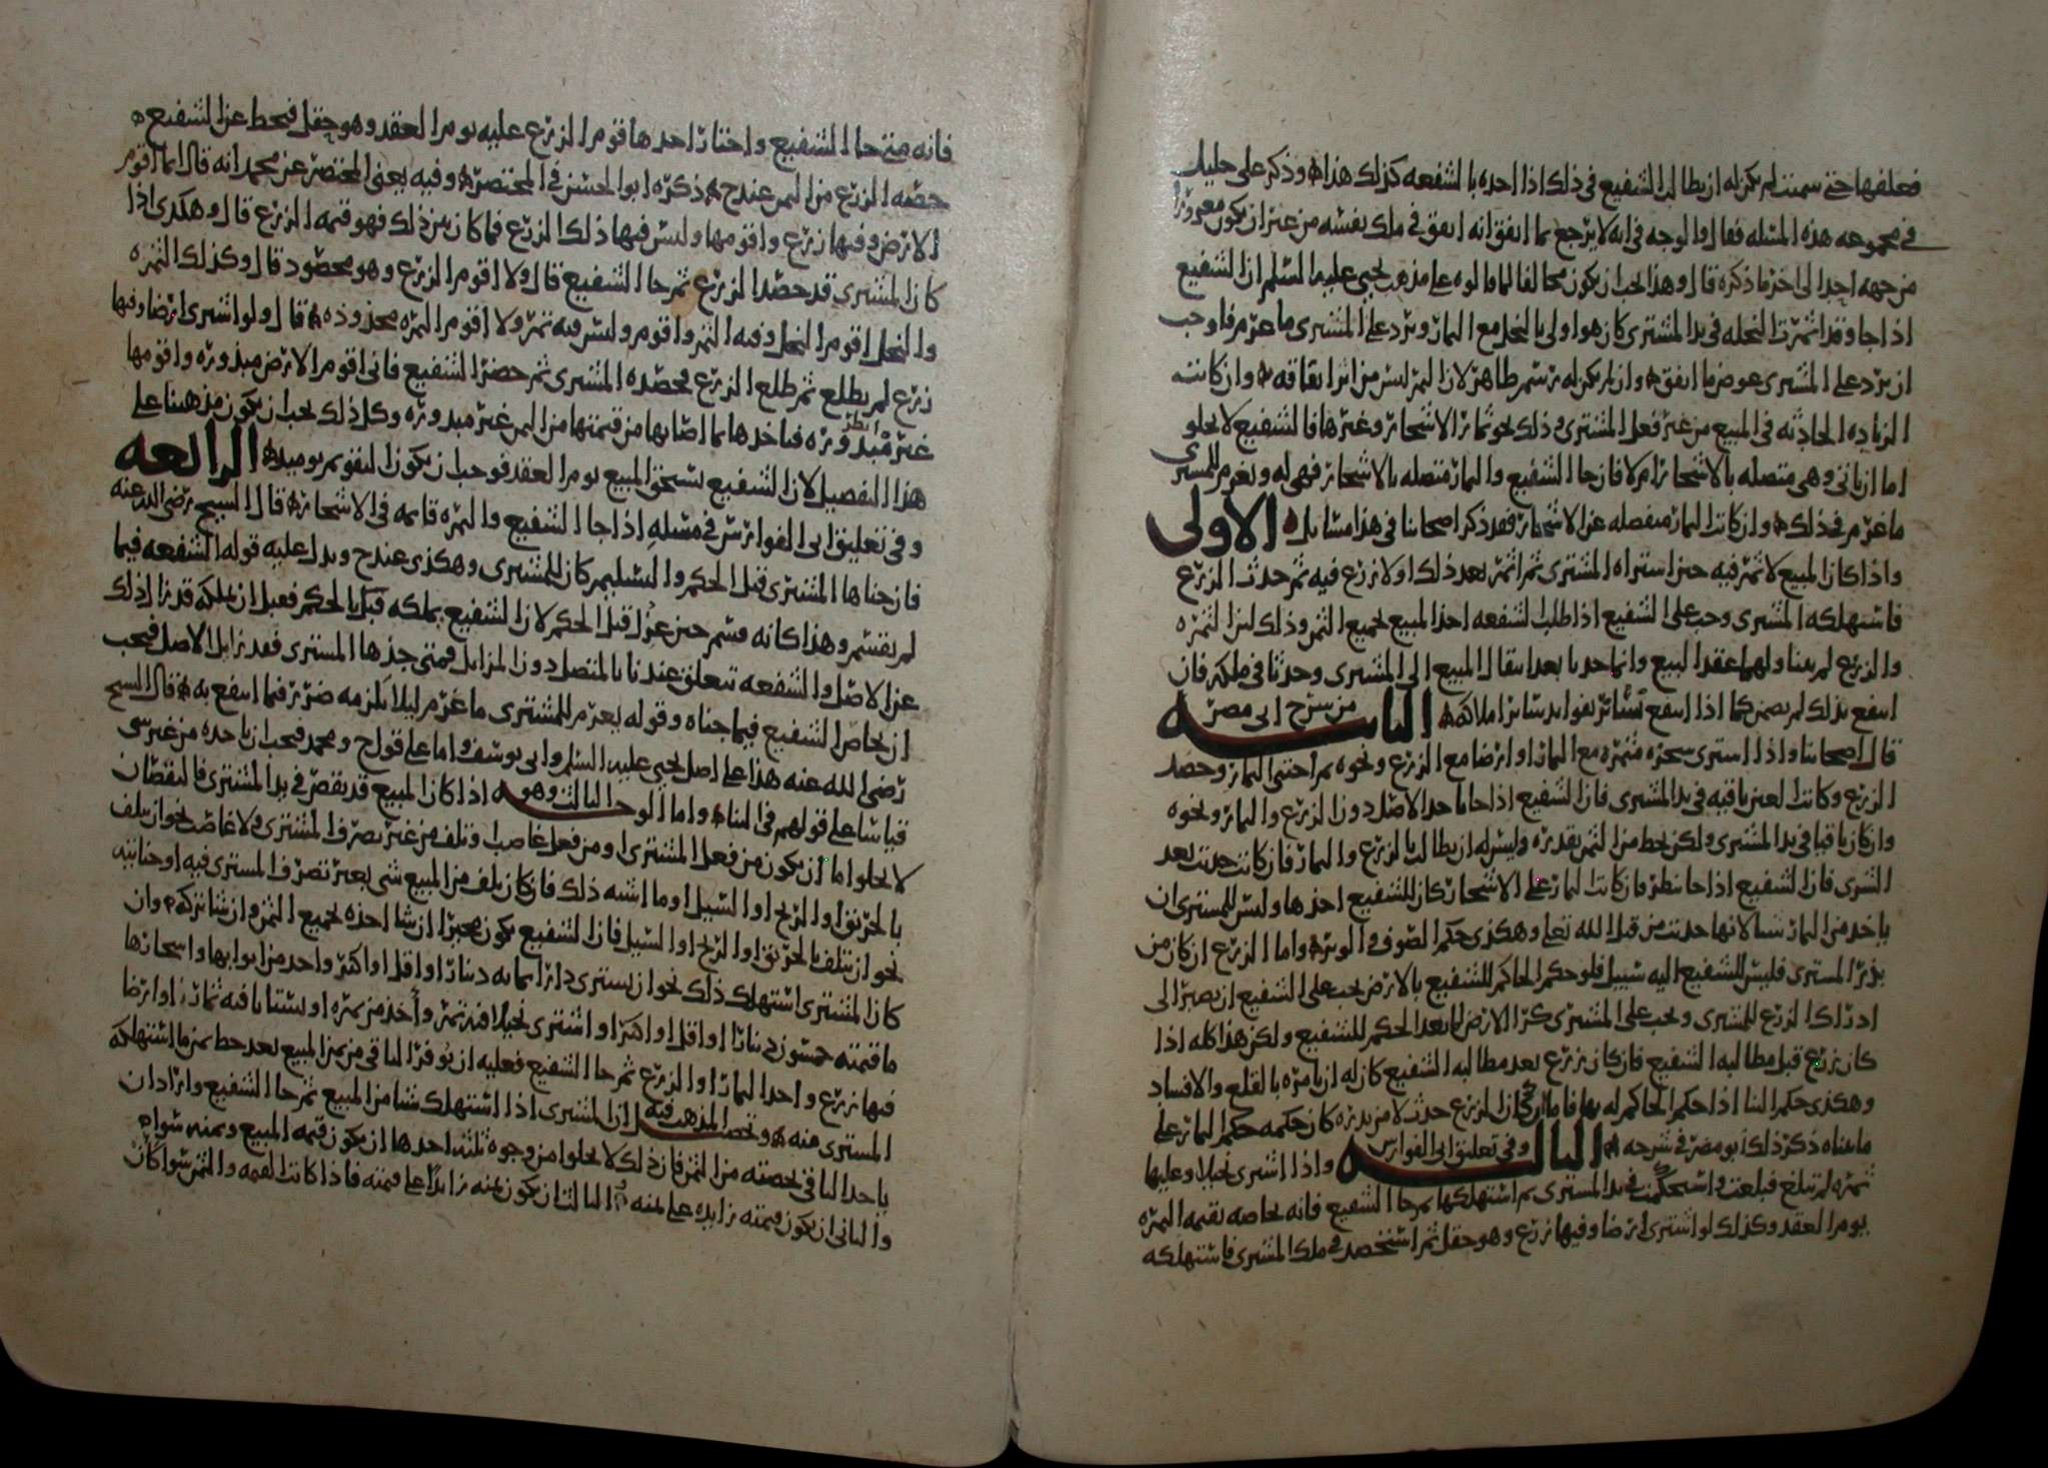 فعلفها حتى سمنت لم يكن له ان يطالب الشفيع في ذلك اذا اخذه بالشفعه كذلك هذا وذكر علي خليل
في مجموعه هذه المسئله فقال والوجه في انه لا يرجع بما انفق انه انفق في ملك نفسه من غير ان يكون مغرورا
من جهه احد الى اخر ما ذكره قال وهذا يجب ان يكون مخالفا لما قالوه على مذهب يحيى عليه السلم ان الشفيع
اذا جا وقد اثمرت النخله في يد المشتري كان هو اولى بالنخل مع الثمار ويرد على المشتري ما غرم فاوجب
ان يرد على المشتري عوض ما انفق وان لم يكن له رسم ظاهر لان الثمر ليس من اثر انفاقه وان كانت
الزياده الحادثه في المبيع من غير فعل المشتري وذلك نحو ثمار الاشجار وغيرها فالشفيع لا يخلو
اما ان ياتي وهي متصله بالاشجار ام لا فان جا الشفيع والثمار متصله بالاشجار فهي له ويغرم للمشتري
ما غرم في ذلك وان كانت الثمار منفصله عن الاشجار فقد ذكر اصحابنا في هذا مسائل الاولى
واذا كان المبيع لا ثمر فيه حين استراه المشتري ثم اثمر بعد ذلك او لا زرع فيه ثم حدث الزرع
فاستهلكه المشتري وجب على الشفيع اذا طلب الشفعه اخذ المبيع بجميع الثمن وذلك لان الثمره
والزرع لم يتناولهما عقد البيع وانما حدثا بعد انتقال المبيع الى المشتري وحدثا في ملكه فان
انتفع بذلك لم يضمن كما اذا انتفع بسائر فوايد سائر املاكه الثانيه من شرح ابي مضر
قال اصحابنا واذا استرى شجره مثمره مع الثمار او ارضا مع الزرع ونحوه ثم اجتنى الثمار وحصد
الزرع وكانت العين باقيه في يد المشتري فان الشفيع اذا جا ياخذ الاصل دون الزرع والثمار ونحوه
وان كان باقيا في يد المشتري ولكن يحط من الثمن بقدره وليس له ان يطالب بالزرع والثمار فان كانت حدثت بعد
الشرى فان الشفيع اذا جا نظر فان كانت الثمار على الاشجار كان للشفيع اخذها وليس للمشتري ان
ياخذ من الثمار شيا لانها حدثت من قبل الله تعلى وهكذى حكم الصوف والوبر واما الزرع ان كان من
بذر المشتري فليس للشفيع اليه سبيل فلو حكم الحاكم للشفيع بالارض يجب على الشفيع ان يصبر الى
ادراك الزرع للمشتري ويجب على المشتري كرا الارض لما بعد الحكم للشفيع ولكن هذا كله اذا
كان زرع قبل مطالبه الشفيع فان كان زرع بعد مطالبه الشفيع كان له ان يامره بالقلع والافساد
وهكذى حكم البنا اذا حكم الحاكم له بها فاما ان كان الزرع حدث لا من بذره كان حكمه حكم الثمار على
ما بيناه ذكر ذلك ابو مضر في شرحه الثالثه وفي تعليق ابي الفوارس واذا اشترى نخيلا وعليها
ثمره لم تبلغ فبلغت واستحكمت في يد المشتري ثم استهلكها ثم جا الشفيع فانه يحاصه بقيمه الثمره
يوم العقد وكذلك لو اشترى ارضا وفيها زرع وهو حقل ثم استحصد في ملك المشتري فاستهلكه
فانه متى جا الشفيع واختار اخذها قوم الزرع عليه يوم العقد وهو حقل فيحط عن الشفيع
حصه الزرع من الثمن عندح ذكره ابو الحسن في المختصر وفيه يعني المختصر عن محمد انه قال انما اقوم
الارض وفيها زرع واقومها وليس فيها ذلك الزرع فما كان بين ذلك فهو قيمه الزرع قال وهكذى اذا
كان المشتري قد حصد الزرع ثم جا الشفيع قال ولا اقوم الزرع وهو محصود قال وكذلك الثمره
والنخل اقوم النخل وفيه الثمر واقوم وليس فيه ثمر ولا اقوم الثمره مجذوذه قال ولو اشترى ارضا وفيها
زرع لم يطلع ثم طلع الزرع فحصده المشتري ثم حضر الشفيع فاني اقوم الارض مبذوره واقومها
غير مبذوره فياخذها بما اصابها من قيمتها من الثمن غير مبذوره وكل ذلك يجب ان يكون مذهبنا على
هذا التفصيل لان الشفيع يستحق المبيع يوم العقد فوجب ان يكون التقويم يوميذ الرابعه
وفي تعليق ابي الفوارس في مسله اذا جا الشفيع والثمره قايمه في الاشجار قال الشيخ رضي الله عنه
فان جناها المشتري قبل الحكم والتسليم كان للمشتري وهكذى عندح ويدل عليه قوله الشفعه فيما
لم يقسم وهذا كانه قسم حين عزل قبل الحكم لان الشفيع يملكه قبل بالحكم فقبل ان يملكه قد زال ذلك
عن الاصل والشفعه تتعلق عندنا بالمتصل دون المزايل فمتى جذها المشتري فقد زايل الاصل فيجب
ان يحاص الشفيع فيما جناه وقوله يغرم للمشتري ما غرم ليلا يلزمه ضرر فيما انتفع به قال الشيخ
رضي الله عنه هذا على اصل يحيى عليه السلم وابي يوسف واما على قول ح ومحمد فيجب ان ياخذه من غير شي
قياسا على قولهم في البنا واما الوجه الثالث وهو اذا كان المبيع قد نقص في يد المشتري فالنقصان
لا يخلو اما ان يكون من فعل المشتري او من فعل غاصب او تلف من غير تصرف المشتري ولا غاصب نحو ان يتلف
بالحريق او الريح او السيل او ما اشبه ذلك فان كان تلف من المبيع شي بغير تصرف المشتري فيه او جنايته
نحو ان يتلف بالحريق او الريح او السيل فان الشفيع يكون مخيرا ان شا اخذه بجميع الثمن وان شا تركه وان
كان المشتري استهلك ذلك نحو ان يشتري دارا بمايه دينار او اقل او اكثر واخذ من ابوابها واشجارها
ما قيمته خمسون دينارا او اقل او اكثر او اشترى نخيلا فيه تمر واخذ من ثمره او بستانا فيه ثمار او ارضا
فيها زرع واخذ الثمار او الزرع ثم جا الشفيع فعليه ان يوفر الباقي من ثمن المبيع بعد حط ثمن ما استهلكه
المشتري منه وتحصيل المذهب فيه ان المشتري اذا استهلك شيا من المبيع ثم جا الشفيع واراد ان
ياخذ الباقي بحصته من الثمن فان ذلك لا يخلو من وجوه ثلثه احدها ان يكون قيمه المبيع وثمنه سوا
والثاني ان يكون قيمته زايده على ثمنه والثالث ان يكون ثمنه زايدا على قيمته فاذا كانت القيمه والثمن سوا كان